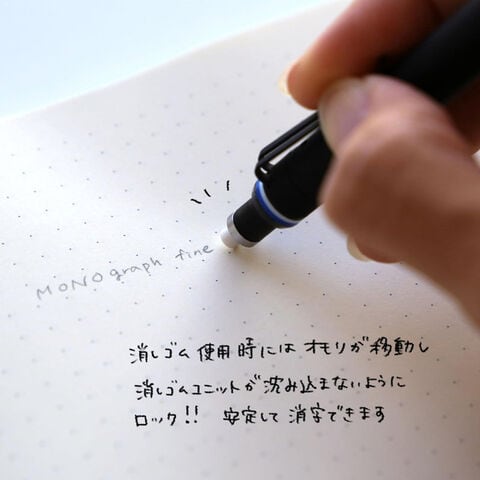 MONOgraph fine
消しゴム使用時にはオモリが移動し
消しゴムユニットが沈み込まないように
ロック!! 安定して消字できます